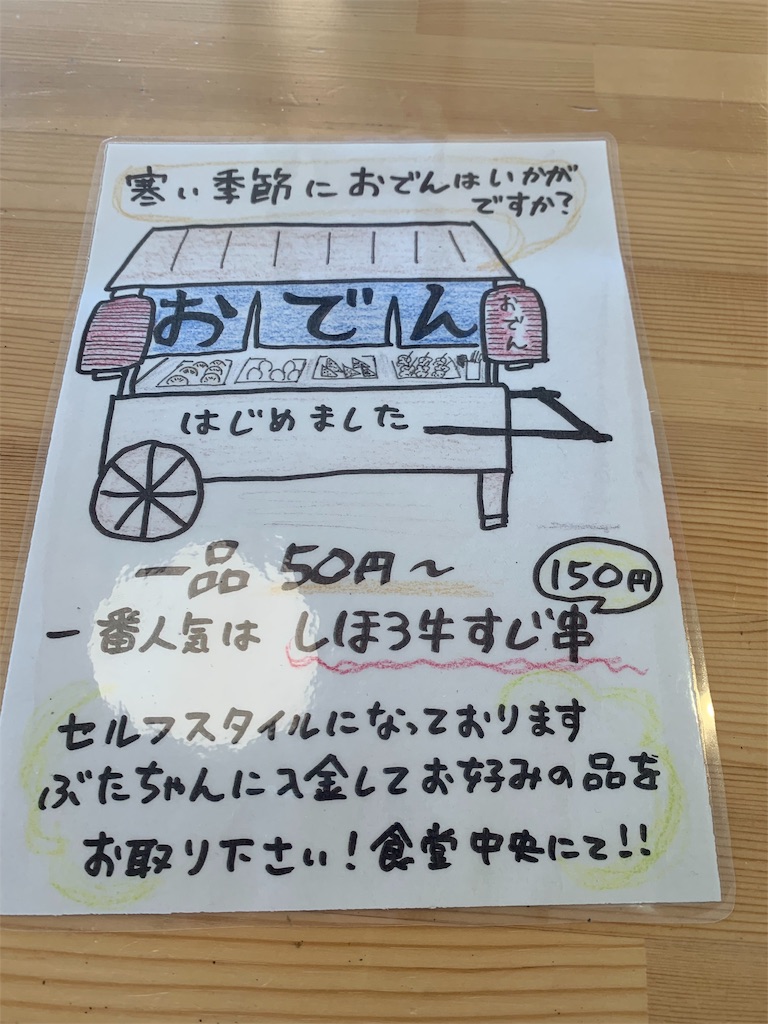 寒い季節におでんはいかが
ですか?
おでん
おでん
はじめました
一品 50円~
150円
一番人気は しほろ牛すじ串
セルフスタイルになっております
ぶたちゃんに入金してお好みの品を
お取り下さい!食堂中央にて!!